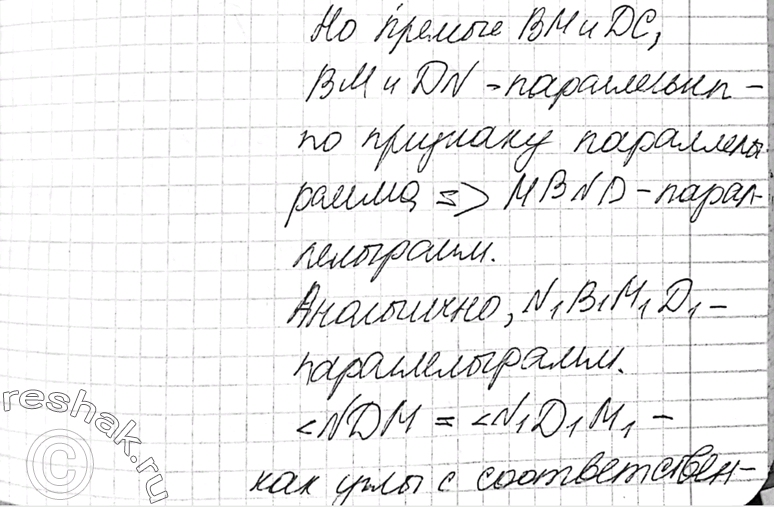 Но прямые BM и DC,
BM и DN - параллельны -
по признаку параллело
грамма => MBND - парал-
лелограмм.
Аналогично, N₁B₁M₁D₁ -
параллелограмм.
<NDM = <N₁D₁M₁ -
как углы с соответствен-
reshak.ru
©